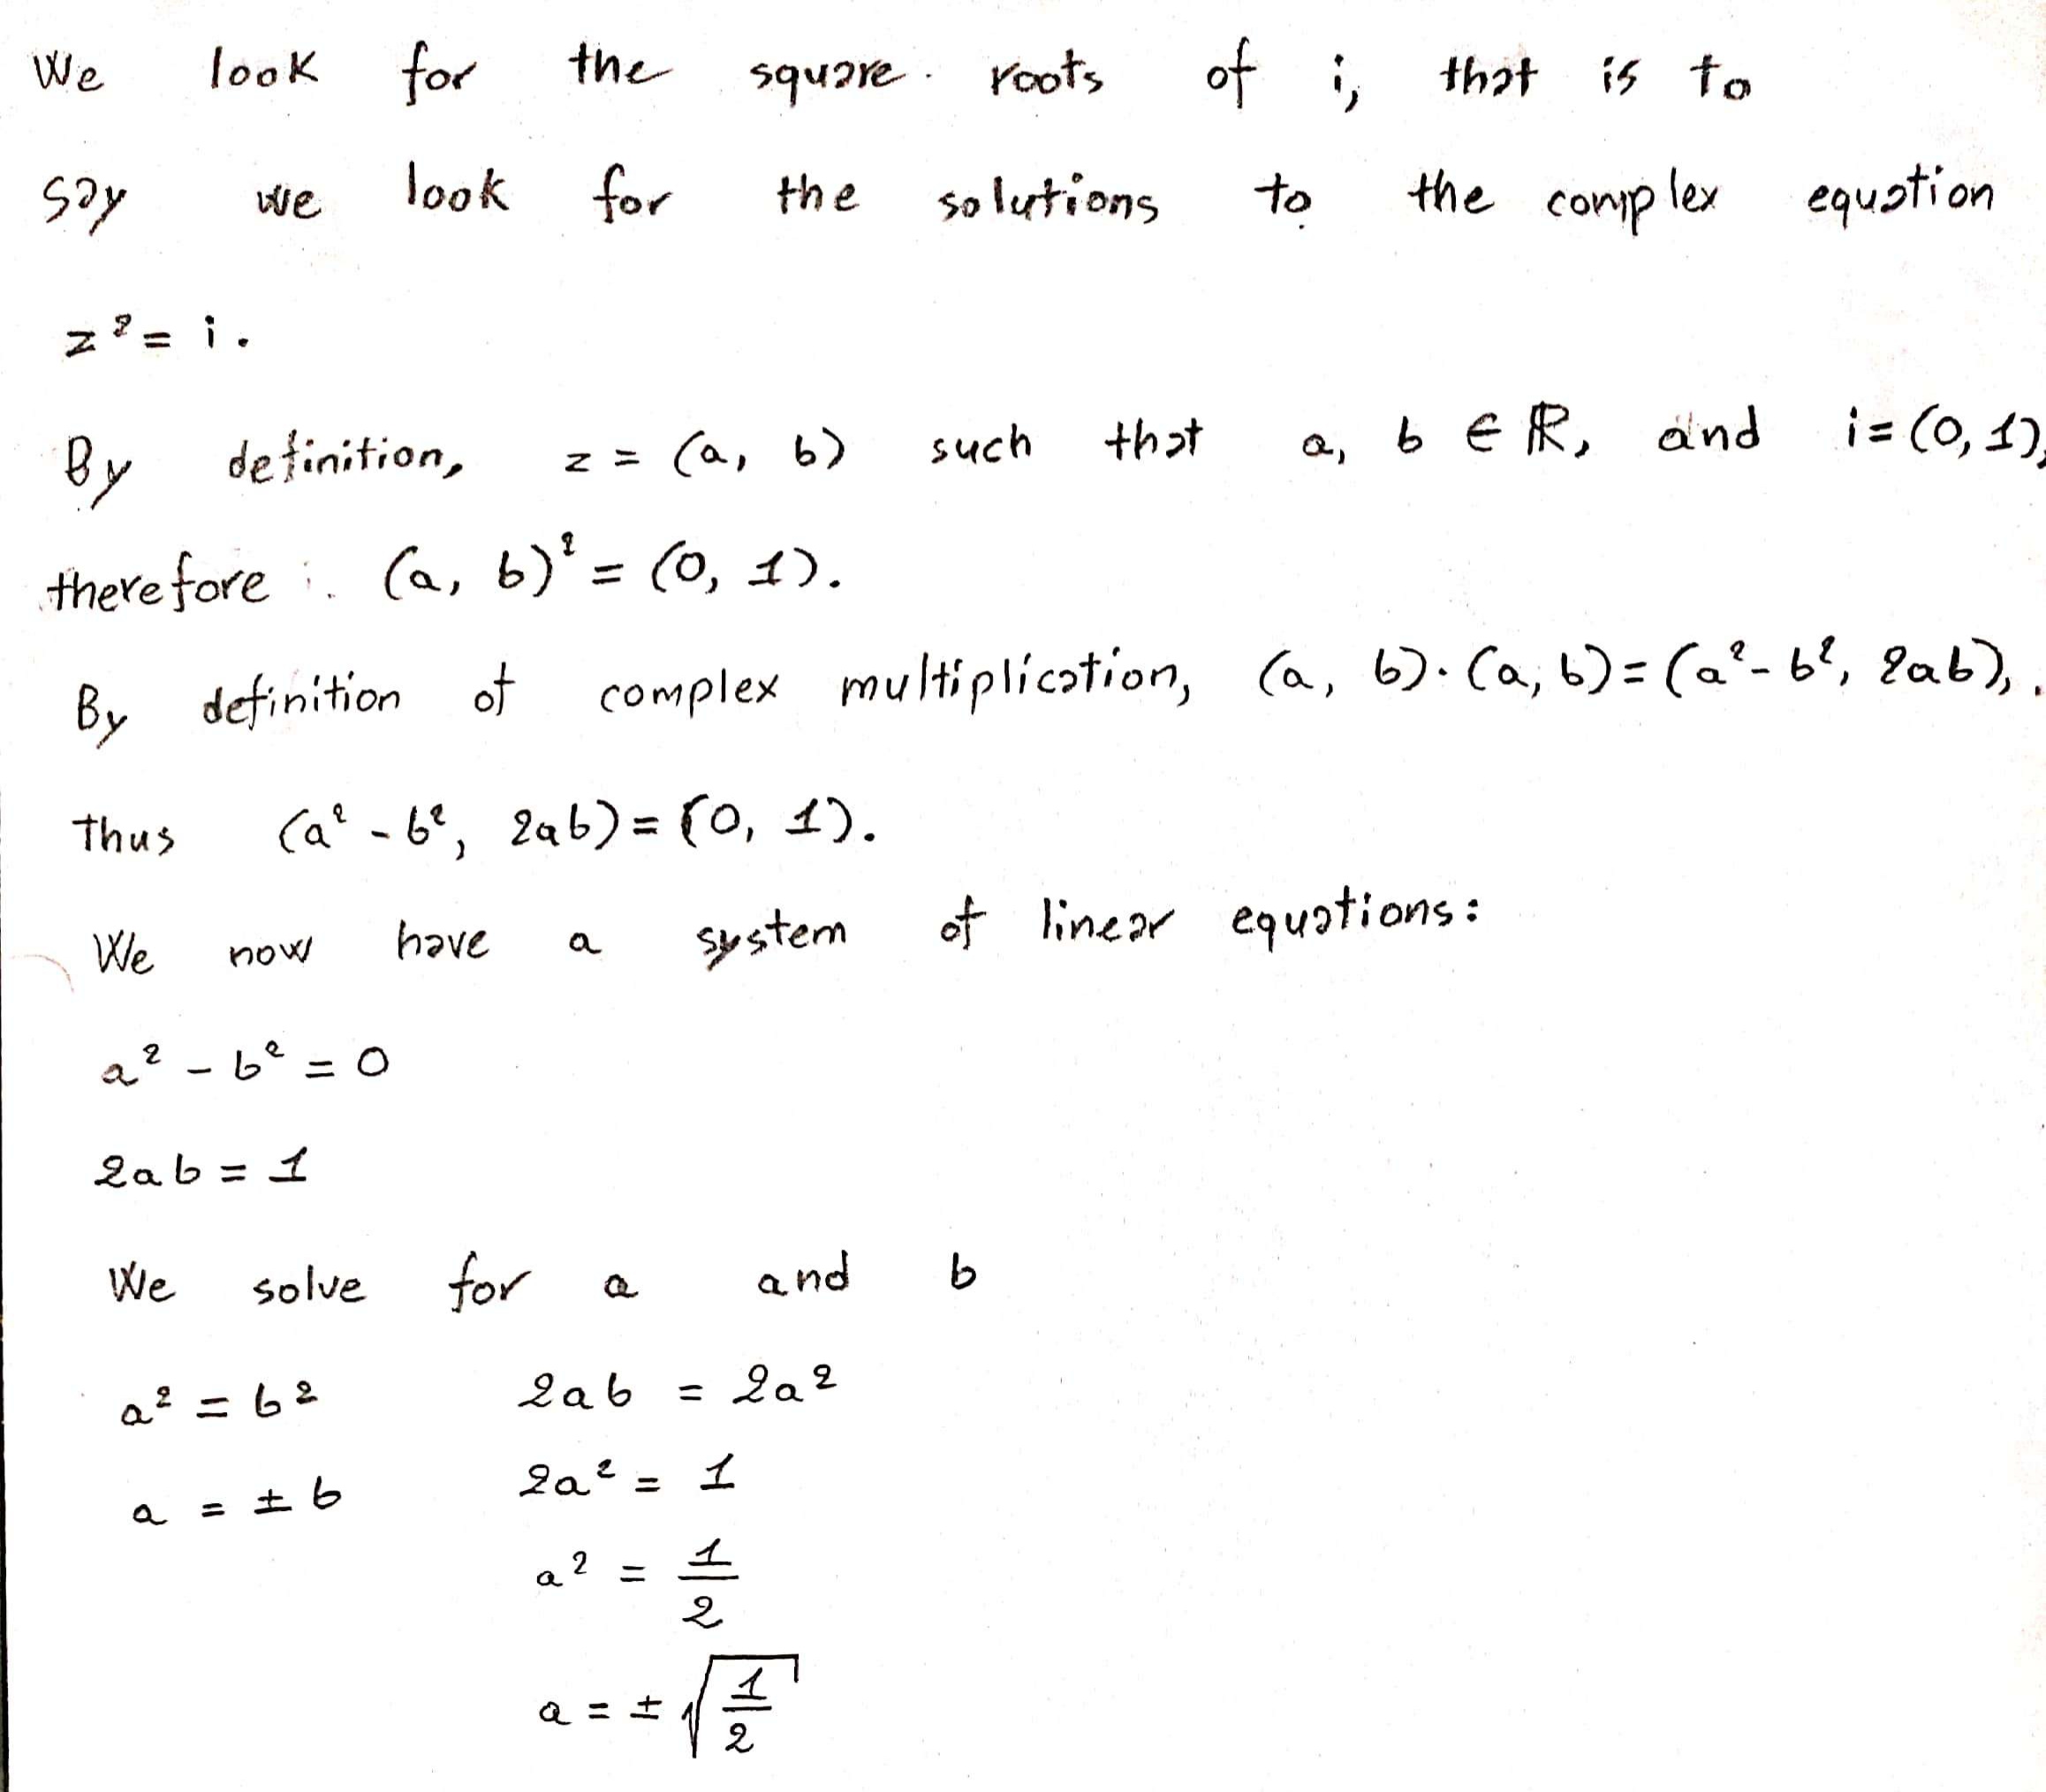 We look for the square roots of i, that is to
say we look for the solutions to the complex equation
z² = i.
By definition, z = (a, b) such that a, b ∈ ℝ, and i = (0, 1),
therefore (a, b)² = (0, 1).
By definition of complex multiplication, (a, b)·(a, b) = (a² - b², 2ab),
Thus (a² - b², 2ab) = (0, 1).
We now have a system of linear equations:
a² - b² = 0
2ab = 1
We solve for a and b
a² = b² 2ab = 2a²
a = ± b 2a² = 1
a² = 1/2
a = ± √(1/2)